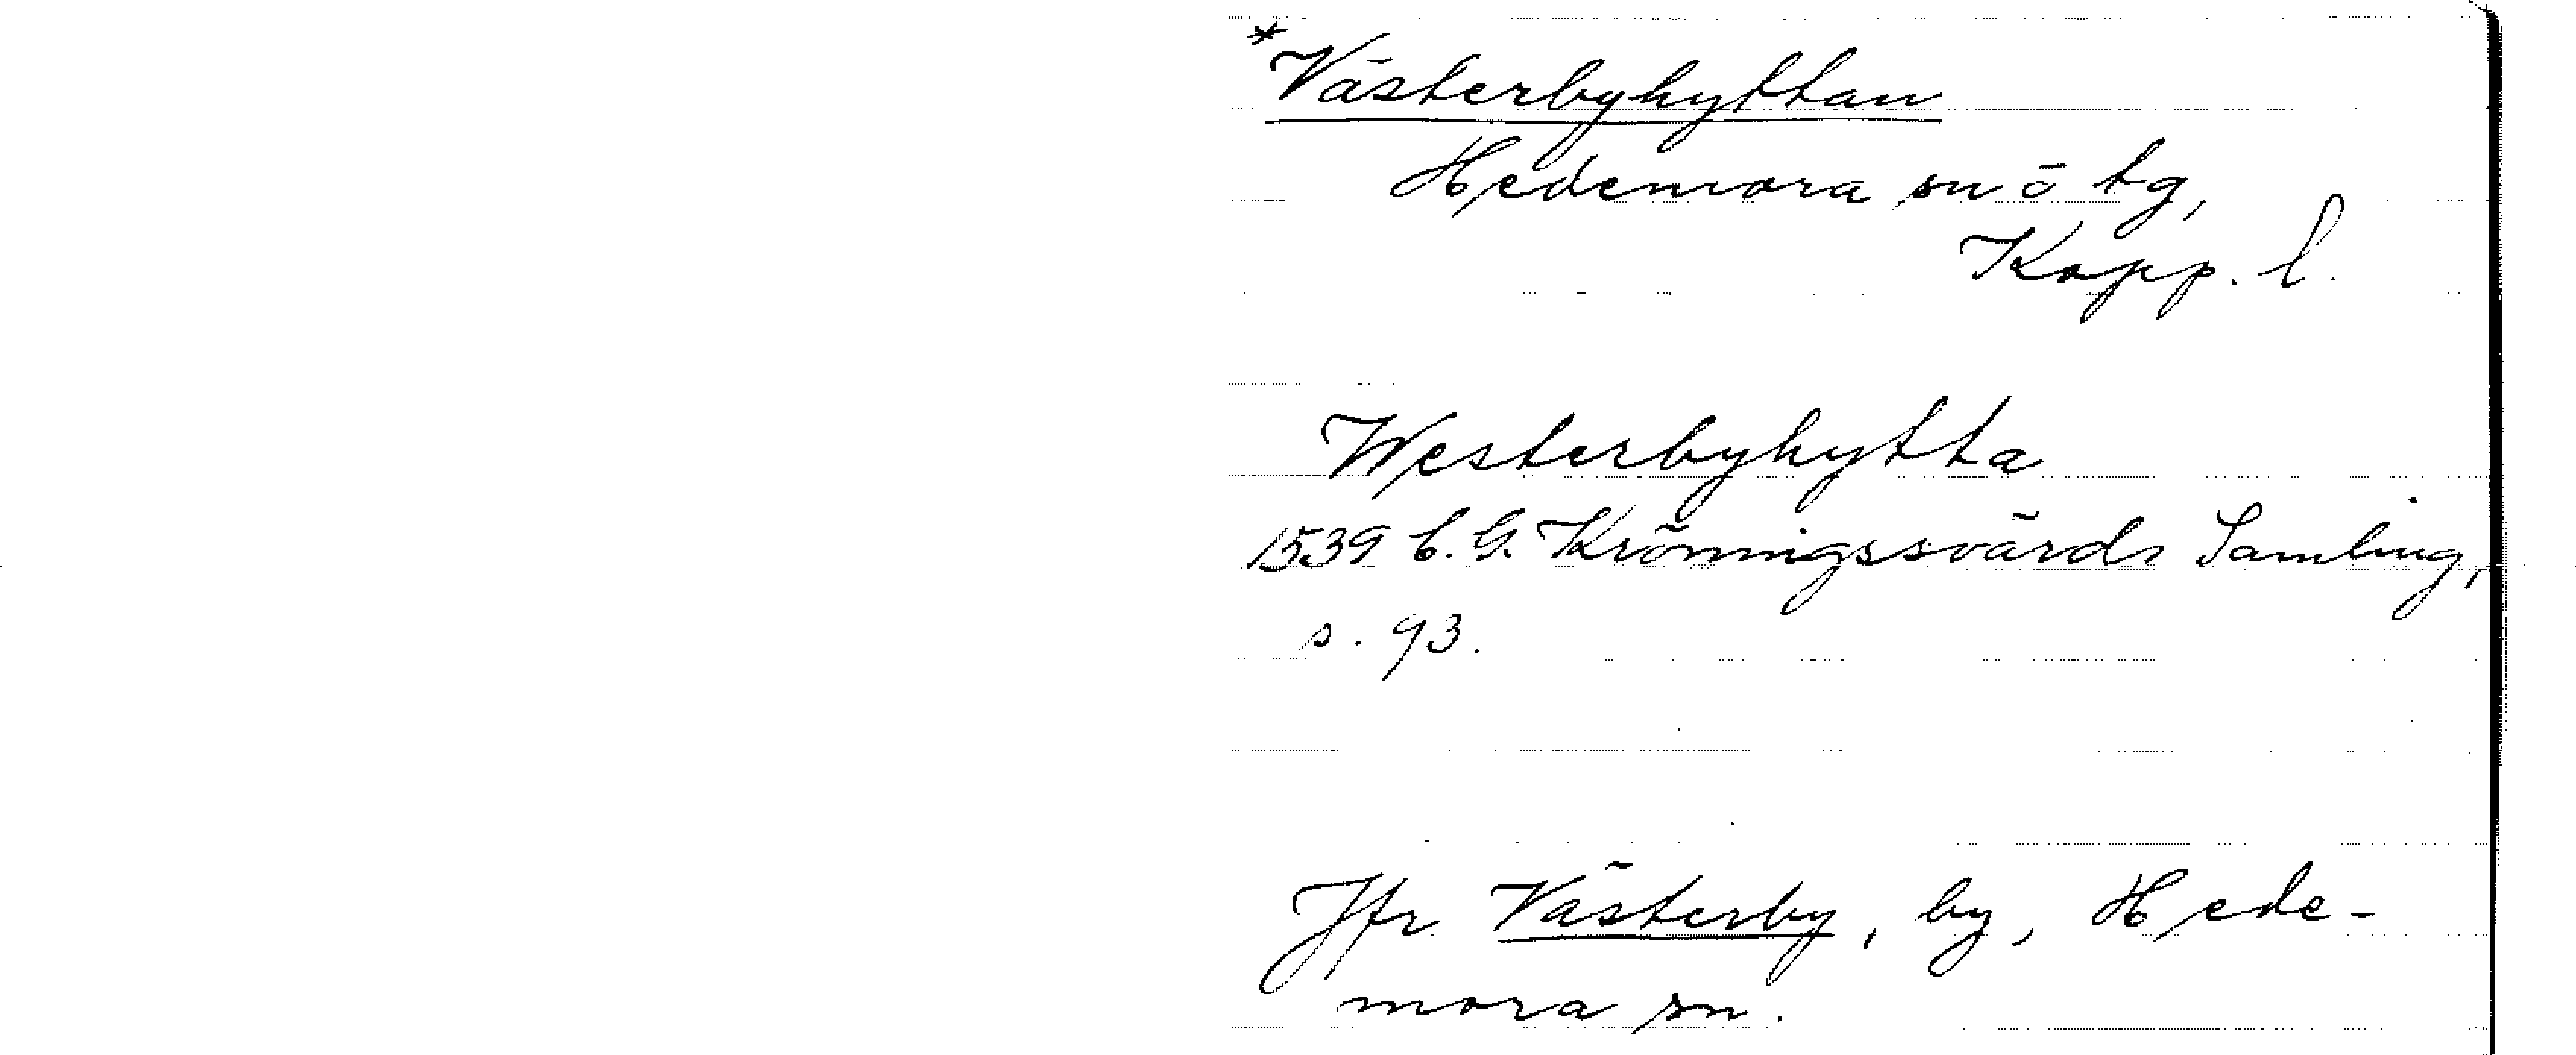 *Västerbyhyttan
Hedemora sn o tg,
Kopp. l.
Westerbyhytta
1539 C. G. Kröningssvärds Samling,
s. 93.
Jfr Västerby, by, Hede-
mora sn.